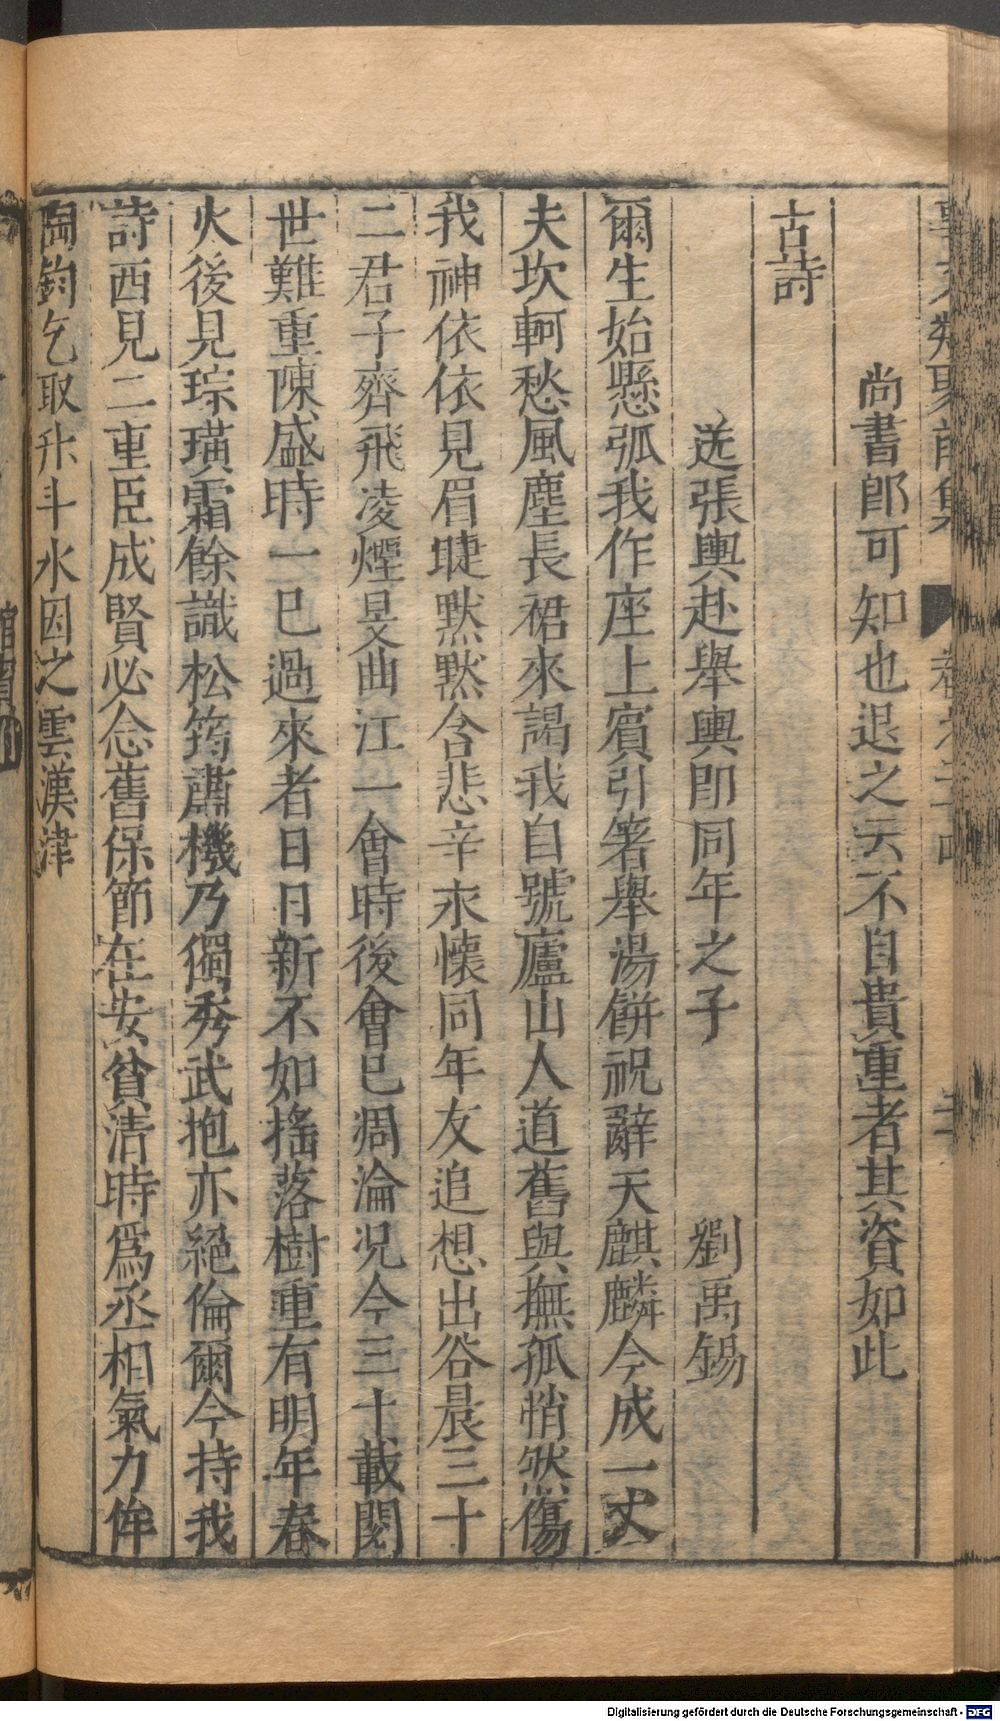 尚書郎可知也退之云不自貴重者其資如此
古詩
送張輿赴舉輿即同年之子 劉禹錫
爾生始懸弧我作座上賓引箸舉湯餅祝辭天麒麟今成一丈
夫坎軻愁風塵長裾來謁我自號廬山人道舊與撫孤悄然傷
我神依依見眉睫默默含悲辛永懷同年友追想出谷晨三十
二君子齊飛凌煙旻曲江一會時後會已凋淪况今三十載閱
世難重陳盛時一已過來者日日新不如搖落樹重有明年春
火後見琮璜霜餘識松筠蕭機乃獨秀武抱亦絕倫爾今持我
詩西見二重臣成賢必念舊保節在安貧清時爲丞相氣力侔
陶鈞乞取升斗水因之雲漢津
Digitalisierung gefördert durch die Deutsche Forschungsgemeinschaft - DFG